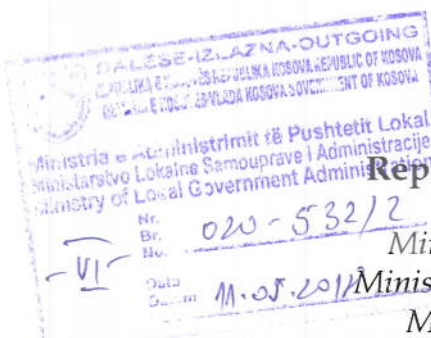 DALESE-IZLAZNA-OUTGOING
REPUBLIKA KOSOVA REPUBLIC OF KOSOVA
VLADA KOSOVA GOVERNMENT OF KOSOVA
Ministria e Administrimit të Pushtetit Lokal
Ministarstvo Lokalne Samouprave i Administracije
Ministry of Local Government Administration
Nr.
Br.
No.
020-532/2
-VI-
Data
11.05.201
Rep
Min
Minis
M